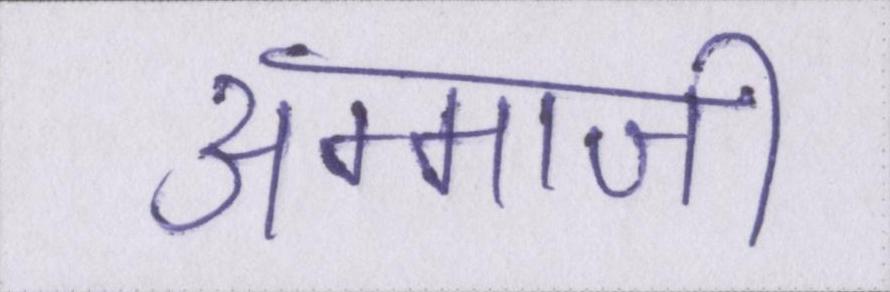 अम्माजी